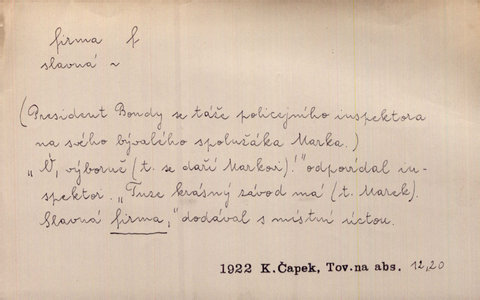 firma f
slavná ~
(President Bondy se táže policejního inspektora
na svého bývalého spolužáka Marka.)
„Ó, výborně (t. se daří Markovi)!" odpovídal in-
spektor. „Tuze krásný závod má (t. Marek).
Slavná firma," dodával s místní úctou.
1922 K.Čapek, Tov.na abs. 12,20